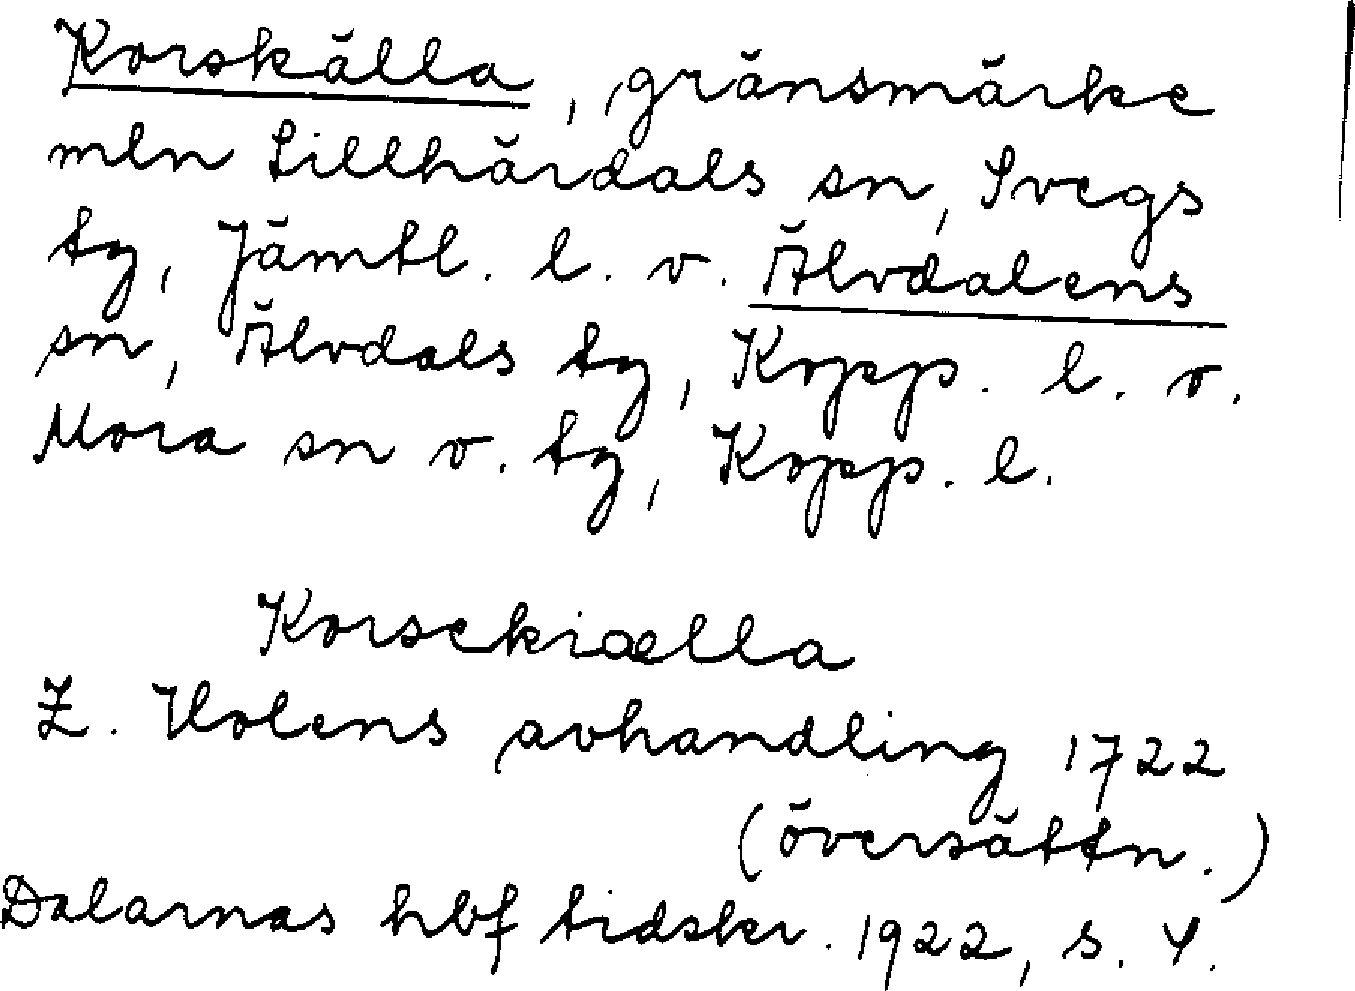 Korskälla, gränsmärke
mln Lillhärdals sn, Svegs
tg, Jämtl. l. v. Älvdalens
sn, Älvdals tg, Kopp. l. o.
Mora sn o. tg, Kopp. l.
Korsekiælla
Z. Holens avhandling 1722
(översättn.)
Dalarnas hbf tidskr. 1922, s. 4.